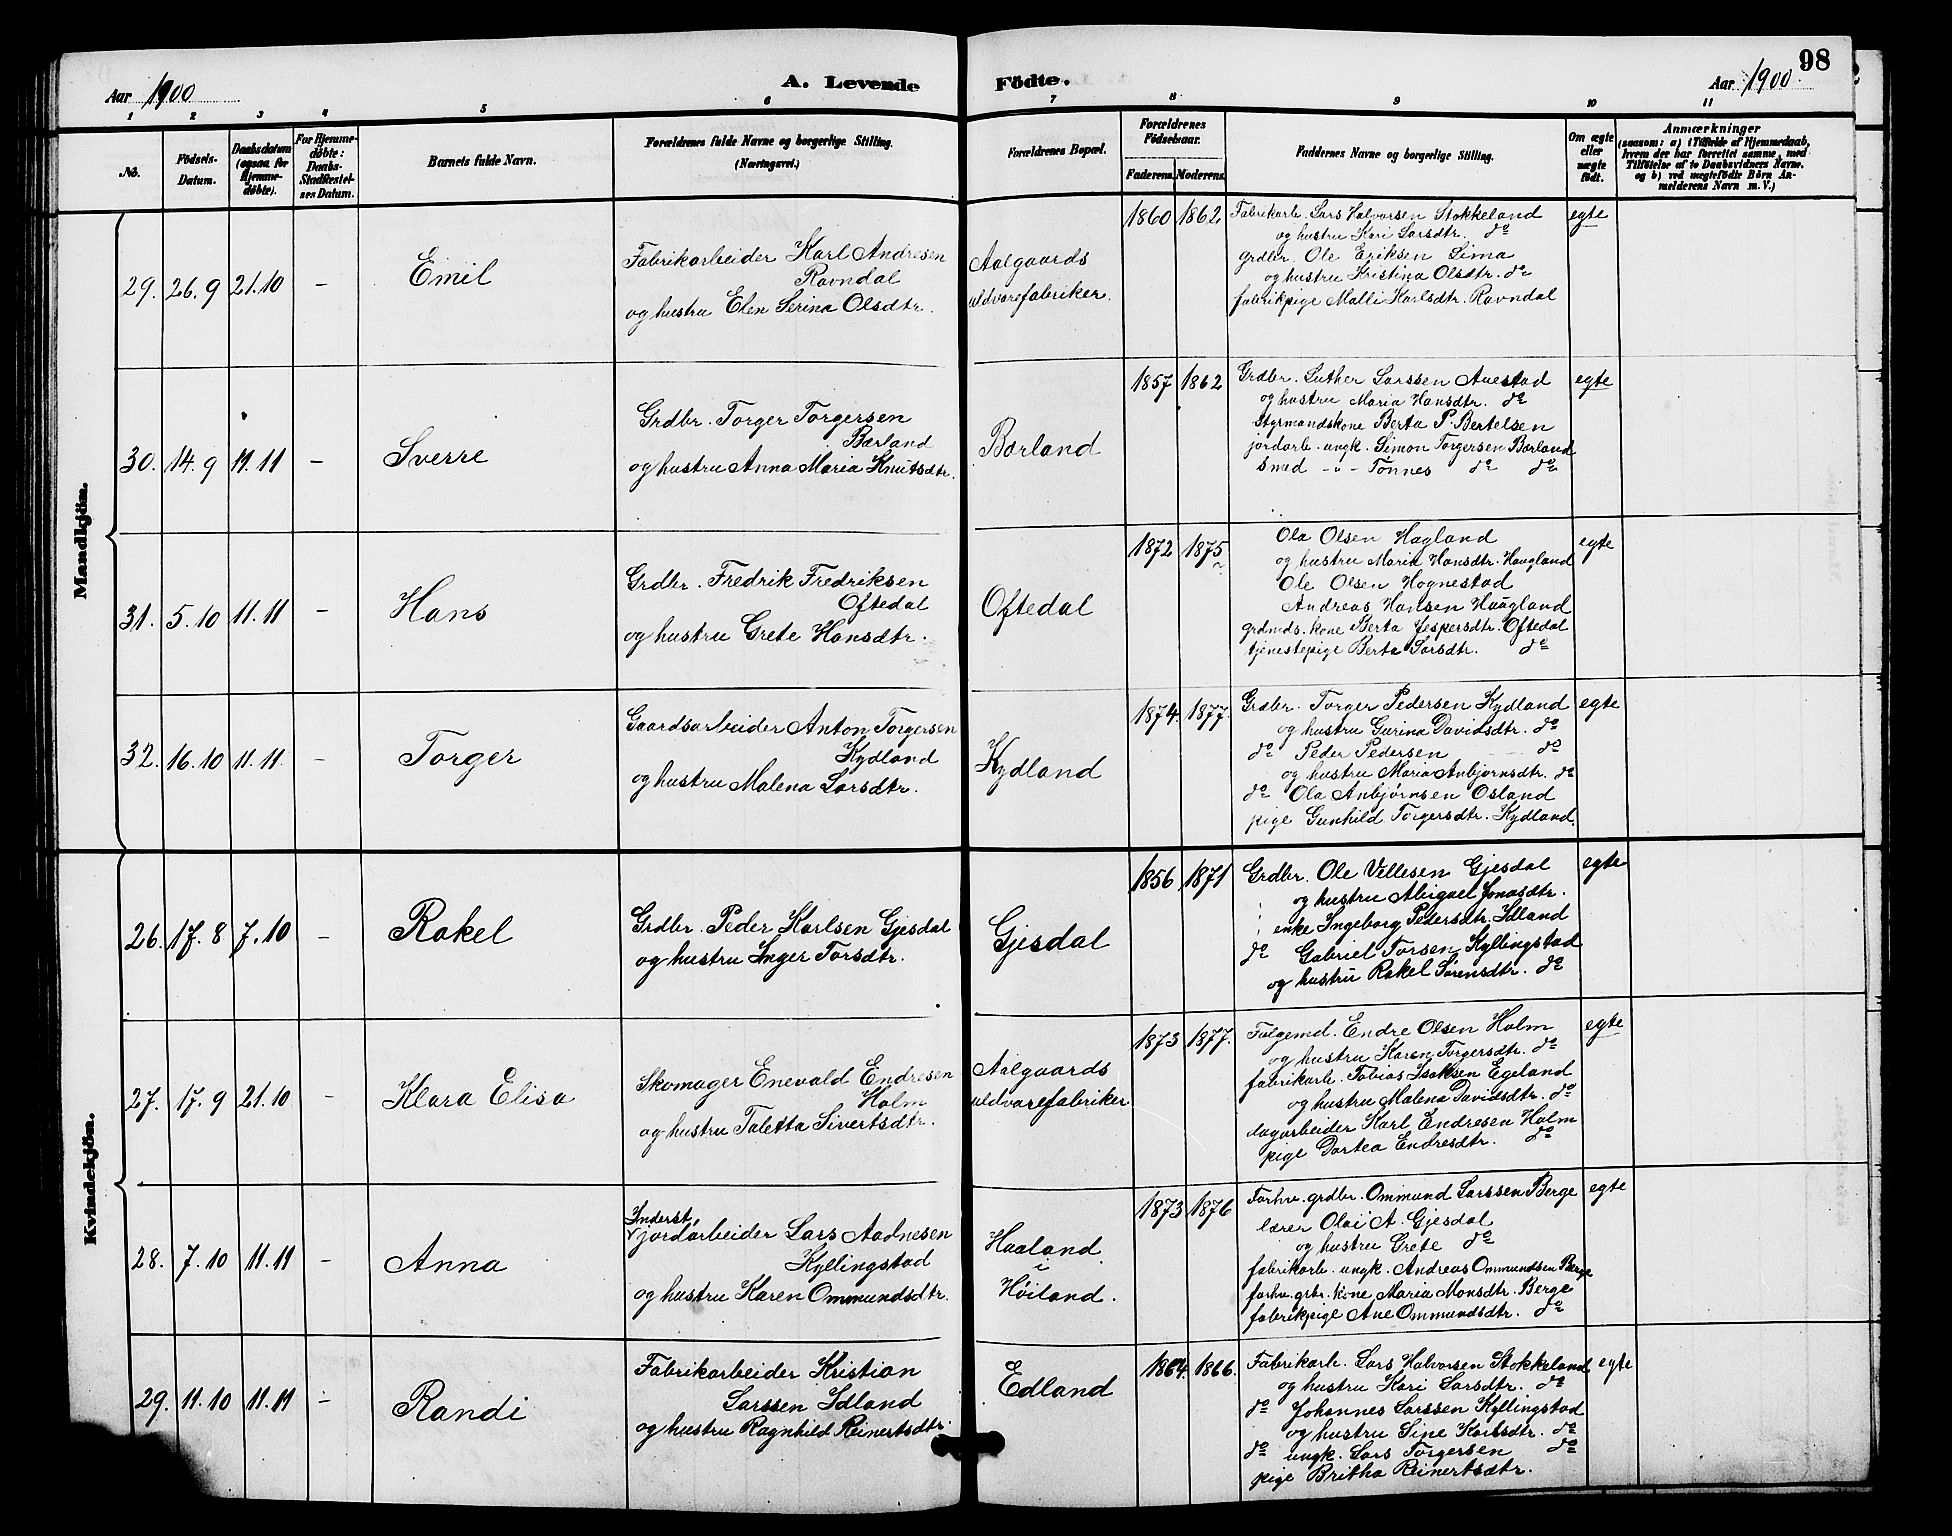 98
Aar 1900
A. Levende Födte.
Aar 1900
1 2 3 4 5 6 7 8 9 10 11
No.
Födsels-
Datum.
Daabsdatum
(ogsaa for
Hjemme-
døbte).
For Hjemme-
døbte:
Daabs-
Stadfæstel-
ses Datum.
Barnets fulde Navn.
Forældrenes fulde Navne og borgerlige Stilling.
(Næringsvei.)
Forældrenes Bopæl.
Forældrenes
Födselsaar.
Faderens. Moderens.
Faddernes Navne og borgerlige Stilling.
Om ægte
eller
uægte
født.
Anmærkninger
(saasom: a) i Tilfælde af Hjemmedaab,
hvem der har forrettet samme, med
Tilføielse af to Daabsvidners Navne,
og b) ved uægtefødte Börn An-
melderens Navn m. V.)
Mandkjön.
29. 26.9 21.10 – Emil
Fabrikarbeider Karl Andresen
Ravndal
og hustru Elen Serina Olsdtr.
Aalgaards
uldvarefabriker.
1860 1862
Fabrikarb. Lars Halvorsen Stokkeland
og hustru Kari Larsdtr. do
grdbr. Ole Eriksen Lima
og hustru Kristina Olsdtr. do
fabrikpige Malli Karlsdtr. Ravndal
egte
30. 14.9 11.11 – Sverre
Grdbr. Torger Torgersen
Bærland
og hustru Anna Maria Knutsdtr.
Bærland
1857 1862
Grdbr. Luther Larssen Auestad
og hustru Maria Hansdtr. do
Styrmandskone Berta P. Bertelsen
jordarb. ungk. Simon Torgersen Bærland
Smed - " - Tønnes do do
egte
31. 5.10 11.11 – Hans
Grdbr. Fredrik Fredriksen
Oftedal
og hustru Grete Hansdtr.
Oftedal
1872 1875
Ola Olsen Hagland
og hustru Marik Hansdtr. Haugland
Ole Olsen Hognestad
Andreas Hansen Haugland
grdmds. kone Berta Jespersdtr. Oftedal
tjenestepige Berta Larsdtr. do
egte
32. 16.10 11.11 – Torger
Gaardsarbeider Anton Torgersen
Kydland
og hustru Malena Larsdtr.
Kydland
1874. 1877.
Grdbr. Torger Pedersen Kydland
og hustru Gurina Davidsdtr. do
do Peder Pedersen do
og hustru Maria Anbjørnsdtr. do
do Ola Anbjørnsen Osland
pige Gunhild Torgersdtr. Kydland.
egte
Kvindekjön.
26. 17.8 7.10 – Rakel
Grdbr. Peder Karlsen Gjesdal
og hustru Inger Torsdtr.
Gjesdal
1856 1871
Grdbr. Ole Villesen Gjesdal
og hustru Abigael Jonasdtr.
enke Ingeborg Pedersdtr. Idland
do Gabriel Torsen Kyllingstad
og hustru Rakel Sørensdtr. do
egte
27. 17.9 21.10 – Klara Elisa
Skomager Enevald Endresen
Holm
og hustru Taletta Sivertsdtr.
Aalgaards
uldvarefabriker
1873 1877.
Følgemd. Endre Olsen Holm
og hustru Karen Torgersdtr. do
fabrikarb. Tobias Isaksen Egeland
og hustru Malena Davidsdtr. do
dagarbeider Karl Endresen Holm
pige Dortea Endresdtr. do
egte
28. 7.10 11.11 – Anna
Inderst,
√jordarbeider Lars Aadnesen
Kyllingstad
og hustru Karen Ommundsdtr.
Haaland
i
Høiland.
1873 1876
Forhv. grdbr. Ommund Larssen Berge
lærer Olai A. Gjesdal
og hustru Grete do
fabrikarb. ungk. Andreas Ommundsen Berge
forhv. grbr. kone Maria Monsdtr. Berge
fabrikpige Ane Ommundsdtr. do
egte
29. 11.10 11.11 – Randi
Fabrikarbeider Kristian
Larssen Idland
og hustru Ragnhild Reinertsdtr.
Edland
1864. 1866.
Fabrikarb. Lars Halvorsen Stokkeland
og hustru Kari Larsdtr. do
do Johannes Larssen Kyllingstad
og hustru Sine Karlsdtr. do
do ungk. Lars Torgersen do
pige Britha Reinertsdtr.
egte